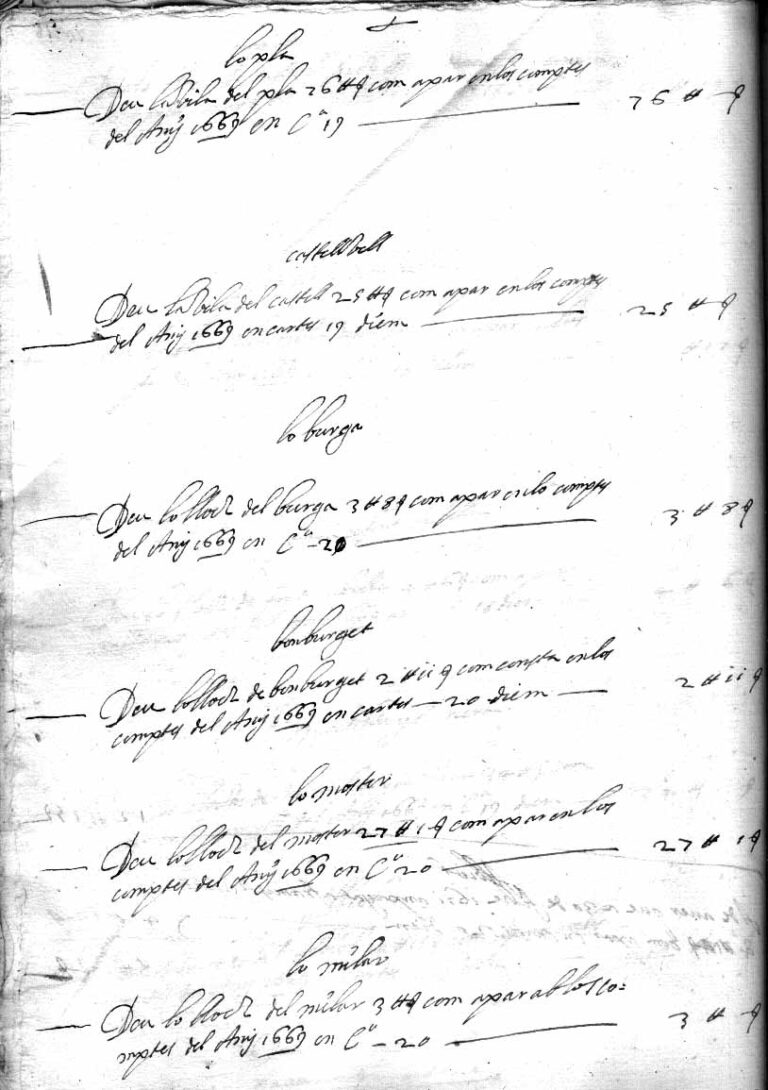 lo pla
Deu la vila del pla 26 ♯ ꝭ com apar en los comptes
del Any 1669 en C.ª 19 26 ♯ ꝭ
castellvell
Deu la vila del castell 25 ♯ ꝭ com apar en los comptes
del Any 1669 en cartes 19 diem 25 ♯ ꝭ
lo burga
Deu lo lloch del burga 3 ♯ 8 ꝭ com apar en lo comptes
del Any 1669 en C.ª 20 3 ♯ 8 ꝭ
bonburget
Deu lo lloch de bonburget 2 ♯ ii ꝭ com consta en los
comptes del Any 1669 en cartes 20 diem 2 ♯ ii ꝭ
lo moster
Deu lo lloch del moster 27 ♯ 1 ꝭ com apar en los
comptes del Any 1669 en C.ª 20 27 ♯ 1 ꝭ
lo milar
Deu lo lloch del milar 3 ♯ ꝭ com apar ab los co=
mptes del Any 1669 en C.ª 20 3 ♯ ꝭ